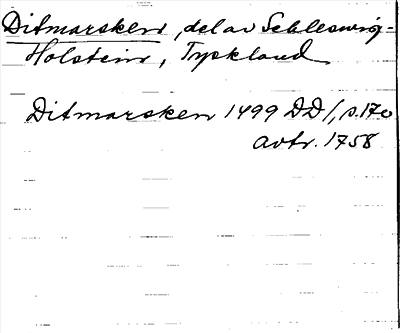 Ditmarsken, del av Schleswig-
Holstein, Tyskland
Ditmarsken 1499 DD1, s. 170
avtr. 1758